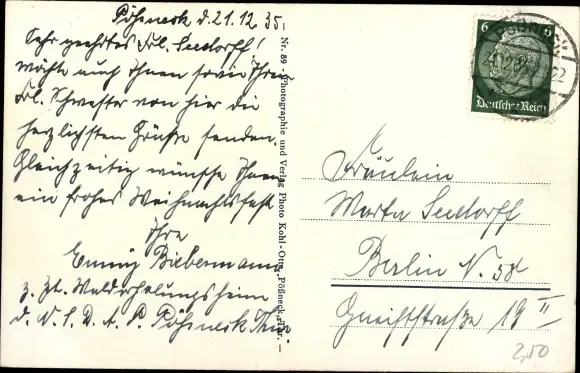 Pößneck d. 21.12.35.
Sehr geehrtes Frl. Seedorff!
Möchte auch Ihnen sowie Ihrer
Frl. Schwester von hier die
herzlichsten Grüße senden.
Gleichzeitig wünsche Ihnen
ein frohes Weihnachtsfest
Ihre
Emmy Biebermann
z. Zt. Walderholungsheim
d. N.S.D.A.P. Pößneck Thür.
Nr. 89 - Photographie und Verlag Photo Kohl-Otto, Pößneck, Thür. -
6 6
Deutsches Reich
PÖSSNECK
Fräulein
Marta Seedorff
Berlin N. 58
Gneiststraße 19 II
2,50